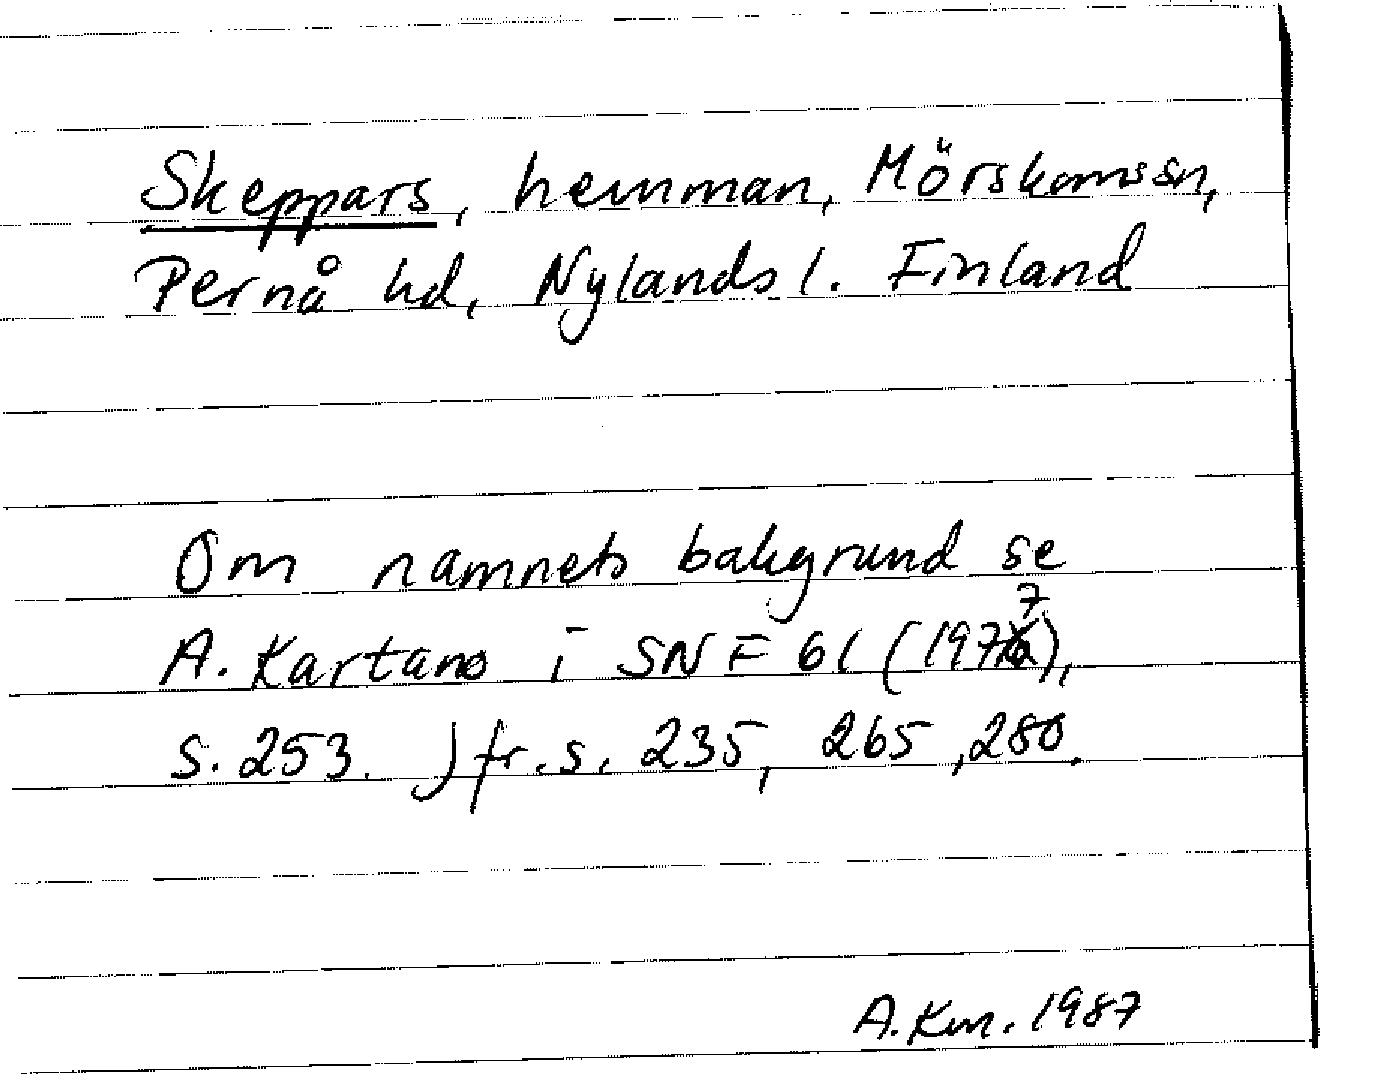 Skeppars, hemman, Mörskoms sn,
Pernå hd, Nylands l. Finland
Om namnets bakgrund se
A. Kartano i SNF 61 (1977),
s. 253. Jfr. s. 235, 265, 280.
A. Km. 1987